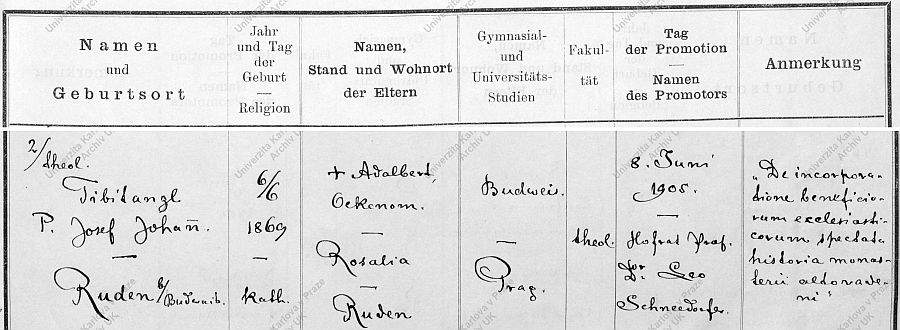 Namen
und
Geburtsort
Jahr
und Tag
der
Geburt
Religion
Namen,
Stand und Wohnort
der Eltern
Gymnasial-
und
Universitäts-
Studien
Fakul-
tät
Tag
der Promotion
Namen
des Promotors
Anmerkung
2/
theol.
Tibitanzl
P. Josef Johañ.
—
Ruden b/Budweis.
6/6
1869
—
kath.
+ Adalbert,
Oekonom.
—
Rosalia
—
Ruden
Budweis.
—
Prag.
theol.
8. Juni
1905.
—
Hofrat Prof.
Dr. Leo
Schneedorfer.
„De incorpora-
tione beneficio-
rum ecclesiasti-
corum spectata
historia monas-
terii altovade-
ni"
Univerzita Karlova v Praze
Archiv UK